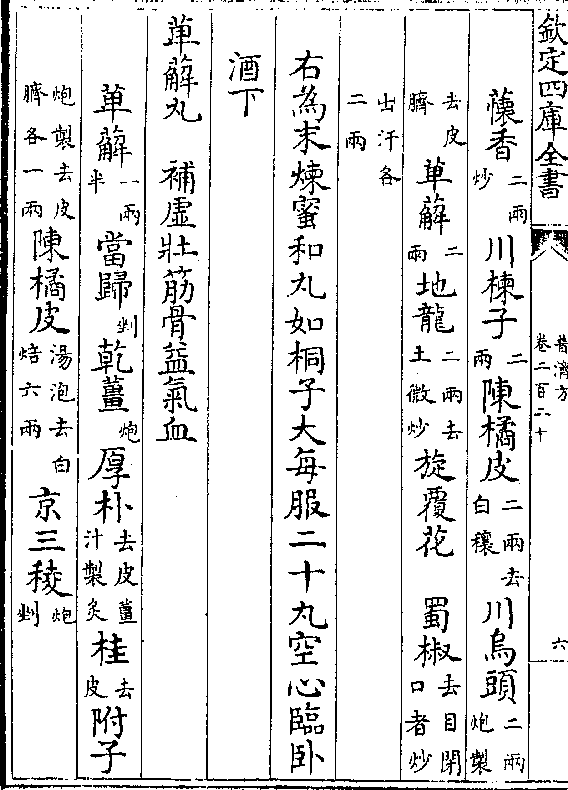 欽定四庫全書
普濟方
卷二百二十
六
蘹香二兩炒川楝子二兩陳橘皮二兩去白穰川烏頭二兩炮製
去皮臍萆薢二兩地龍二兩去土微炒旋覆花　蜀椒去目閉口者炒
出汗各二兩
右為末煉蜜和丸如桐子大每服二十丸空心臨卧
酒下
萆薢丸　補虛壯筋骨益氣血
萆薢一兩半當歸剉乾薑炮厚朴去皮薑汁製炙桂去皮附子
炮製去皮臍各一兩陳橘皮湯泡去白焙六兩京三稜炮剉